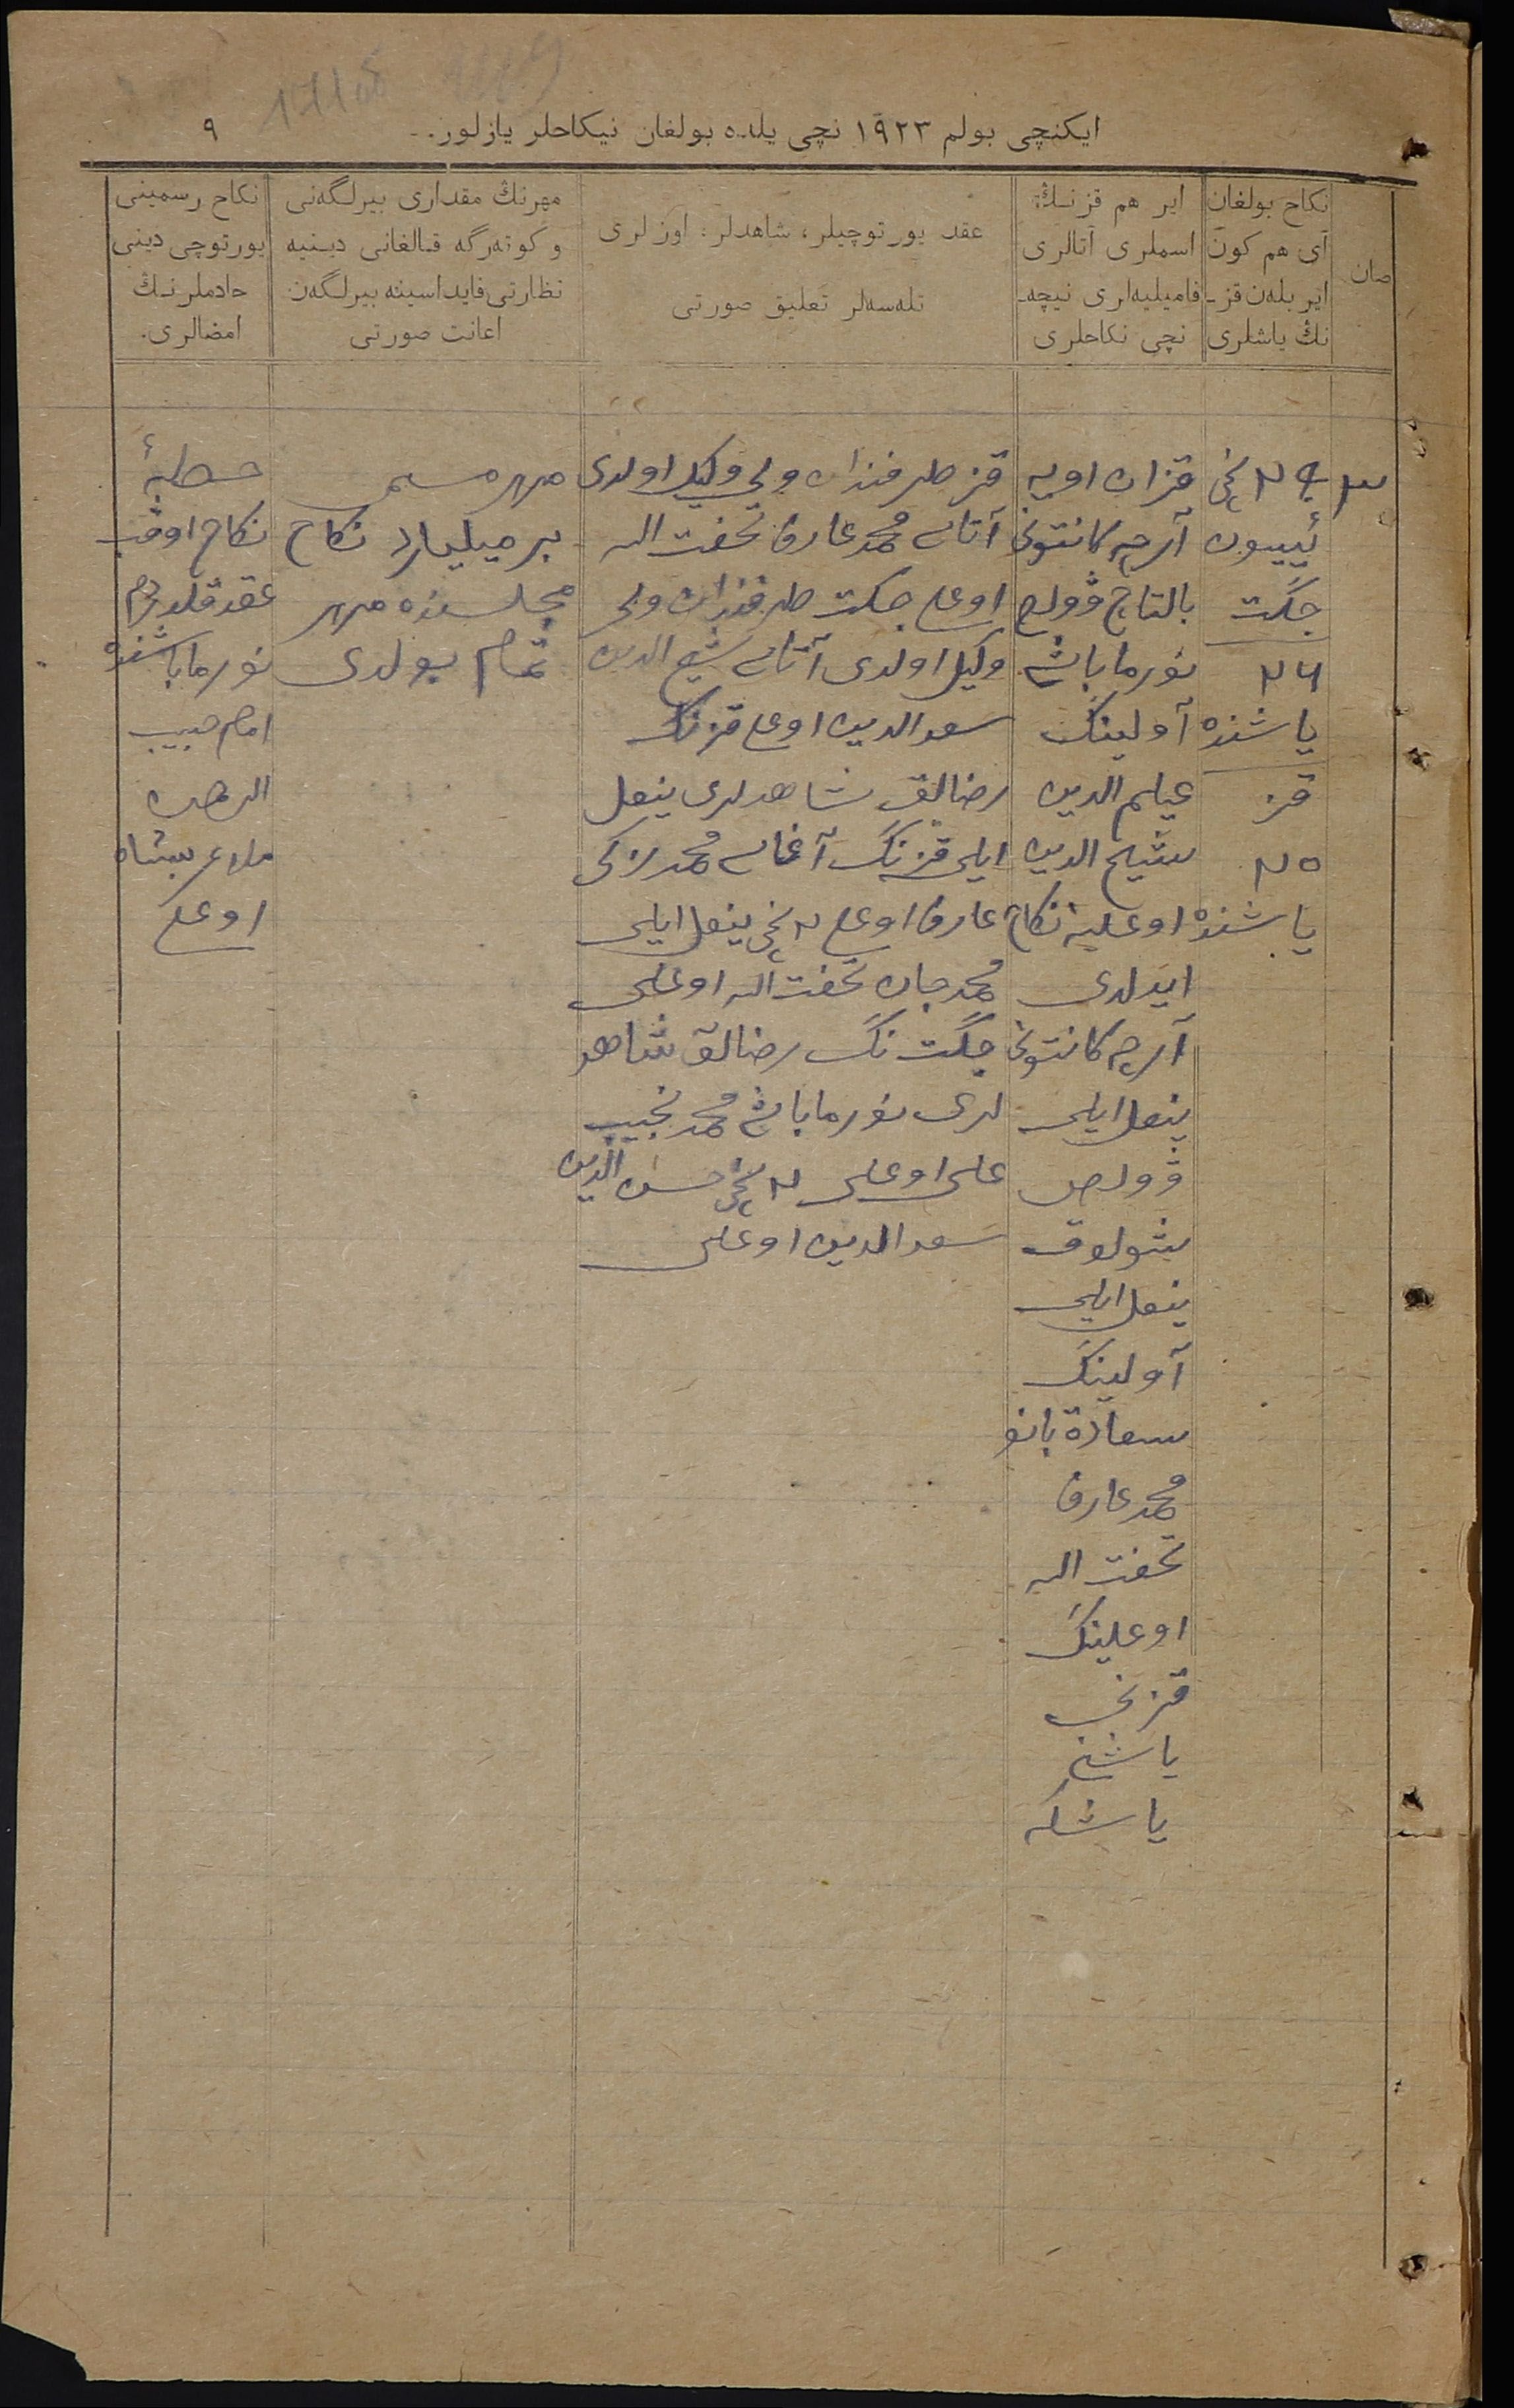 ایکنچی بولم ۱۹۲۳ نچی یلده بولغان نیکاحلر یازلور.
۹
صان
نکاح بولغان
آی هم کون
ایر بلەن قز-
نڭ یاشلری
ایر هم قزنڭ
اسملری آتالری
فامیلیەلری نیچە-
نچی نکاحلری
عقد یورتوچیلر، شاهدلر: اوزلری
تلەسەلر تعلیق صورتی
مهرنڭ مقداری بیرلگەنی
و کوتەرگە قالغانی دینیه
نظارتی فایداسینه بیرلگەن
اعانت صورتی
نکاح رسمینی
یورتوچی دینی
خادملرنڭ
امضالری.
۳
۲۹ نچی
ئییون
جگت
۲۶
یاشنده
قز
۲۵
یاشنده
قزان اویه
آرچه کانتونی
بالتاچ وولص
نورما باش
آولینڭ
عیلم الدین
شیخ الدین
اوغلیه نکاح
ایدلدی
آرچه کانتونی
ینعل ایلی
وولص
شولوق
ینعل ایلی
آولینڭ
سعادة بانو
محمد عارف
تحفت الله
اوغلینڭ
قزنی
یاشنی
یاشکه
قز طرفندان ولی وکیل اولدی
آتاسی محمد عارف تحفت الله
اوغلی جگت طرفندان ولی
وکیل اولدی آتاسی شیخ الدین
سعد الدین اوغلی قزنڭ
رضالق شاهدلری ینعل
ایلی قزنڭ آغاسی محمد زکی
عارف اوغلی ۲ نچی ینعل ایلی
محمد جان تحفت الله اوغلی
جگت نڭ رضالق شاهد
لری نورما باش محمد نجیب
علی اوغلی ۲ نچی حسن الدین
سعد الدین اوغلی
مهر مسمی
بر میلیارد نکاح
مجلسنده مهر
تمام بولدی
خطبهٔ
نکاح اوقب
عقد قلدردم
نورما باشنده
امام حبیب
الرحمن
اوغلی